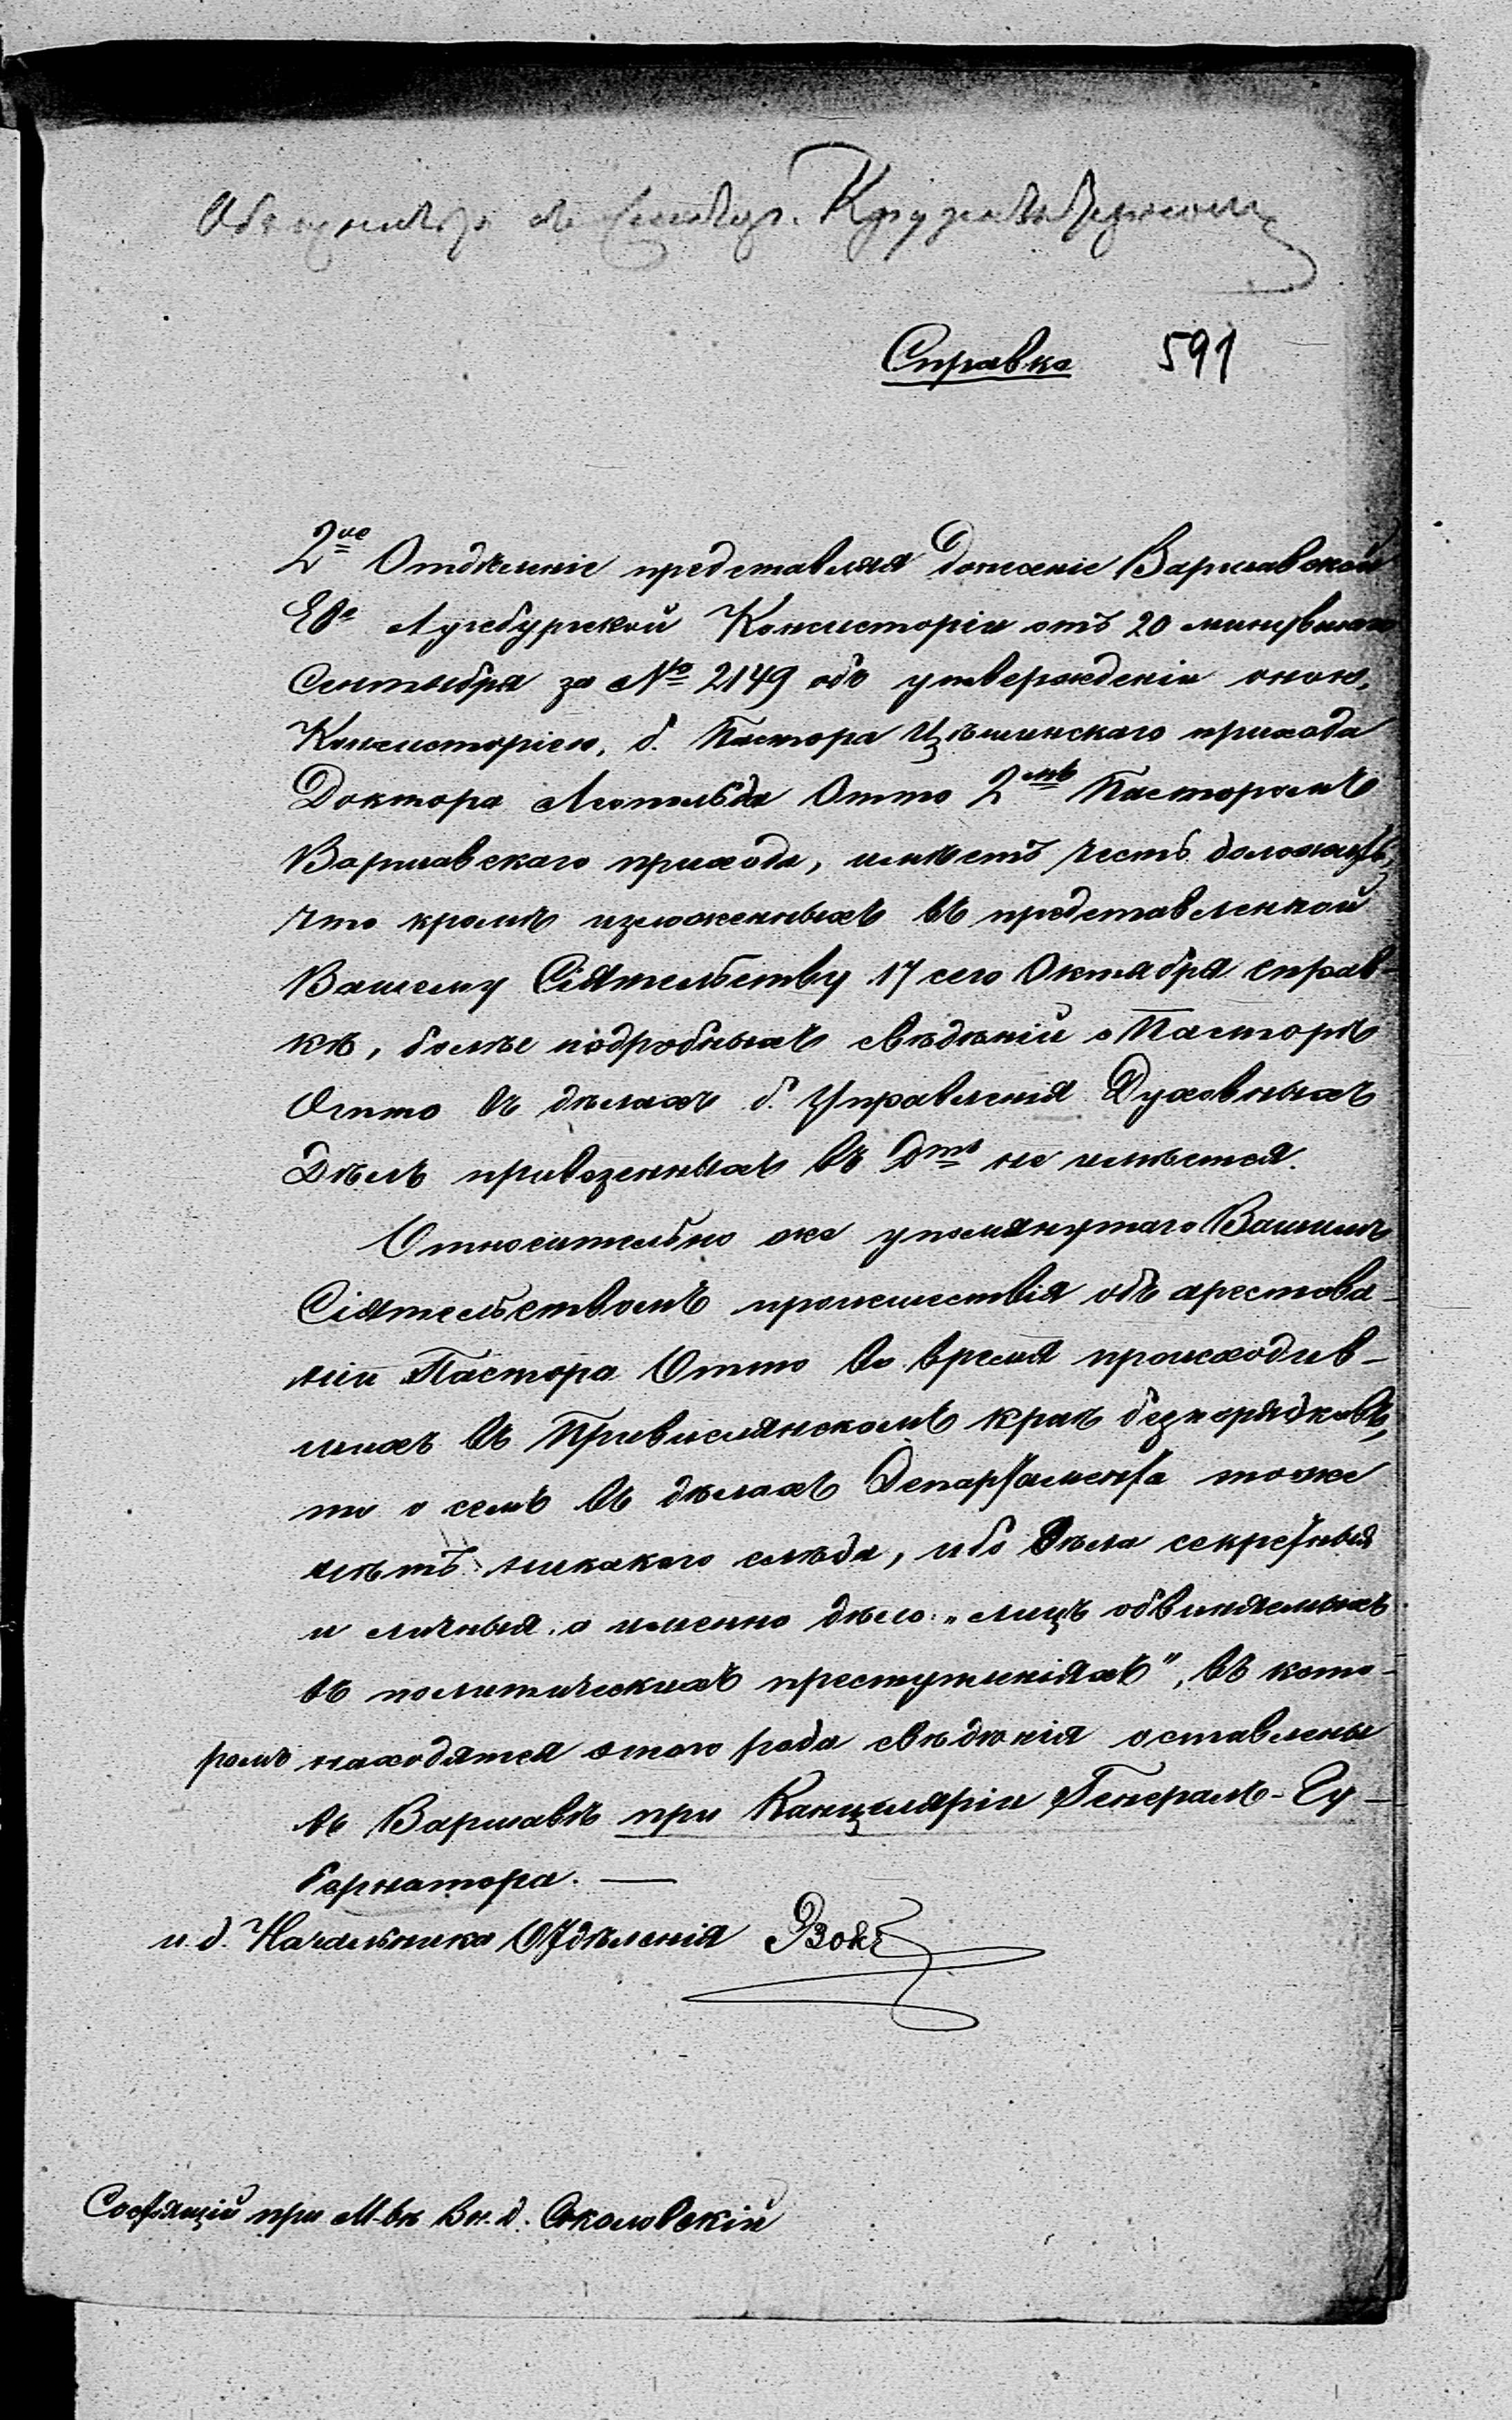 Справка 591
2ое Отдѣленіе представляя донесеніе Варшавской
Ев: Аугсбургской Консисторіи отъ 20 минувшаго
Сентября за № 2149 объ утвержденіи оною,
Консисторіею, б. Пастора Цѣшинскаго прихода
Доктора Леопольда Отто 2мъ Пасторомъ
Варшавскаго прихода, имѣетъ честь доложить,
что кромѣ изложенныхъ въ представленной
Вашему Сіятельству 17 сего Октября справ-
кѣ, болѣе подробныхъ свѣдѣній о Пасторѣ
Отто въ дѣлахъ б. Управленія Духовныхъ
Дѣлъ привезенныхъ въ Дтъ не имѣется.
Относительно же упомянутаго Вашимъ
Сіятельствомъ происшествія объ арестова-
ніи Пастора Отто во время происходив-
шихъ въ Привислянскомъ краѣ безпорядковъ,
то о семъ въ дѣлахъ Департамента тоже
нѣтъ никакого слѣда, ибо дѣла секретныя
и личныя, а именно дѣло: „лицъ обвиняемыхъ
въ политическихъ преступленіяхъ", въ кото-
ромъ находятся этого рода свѣдѣнія оставлены
въ Варшавѣ при Канцеляріи Генералъ-Гу-
бернатора. —
и. д. Начальника Отдѣленія
Состоящій при М-вѣ Вн. д. Соколовскій